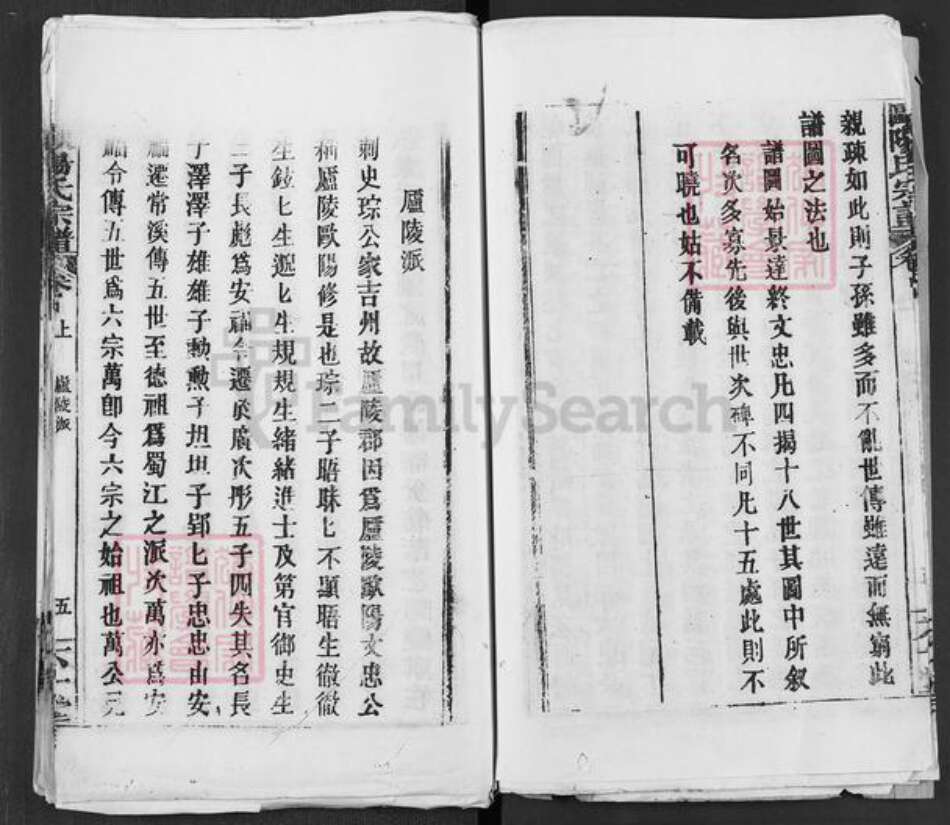 歐陽氏宗譜
親疎如此則子孫雖多而不亂世傳雖遠而無窮此
譜圖之法也
譜圖始景達終文忠凡四揭十八世其圖中所叙
名次多寡先後與世次碑不同凡十五處此則不
可曉也姑不備載
廬陵派
刺史琮公家吉州故廬陵郡因爲廬陵歐陽文忠公
稱廬陵歐陽修是也琮二子晤昧匕不顯晤生徹徹
生鉉匕生遜匕生規規生緒緒進士及第官御史生
二子長彪爲安福令遷於廣次彤五子四失其名長
子澤澤子雄雄子勳勳子坦坦子郢匕子忠忠由安
福遷常溪傳五世至德祖爲蜀江之派次萬亦爲安
福令傳五世爲六宗萬卽今六宗之始祖也萬公元
歐陽氏宗譜卷
上
廬陵派
五
六一堂
FamilySearch